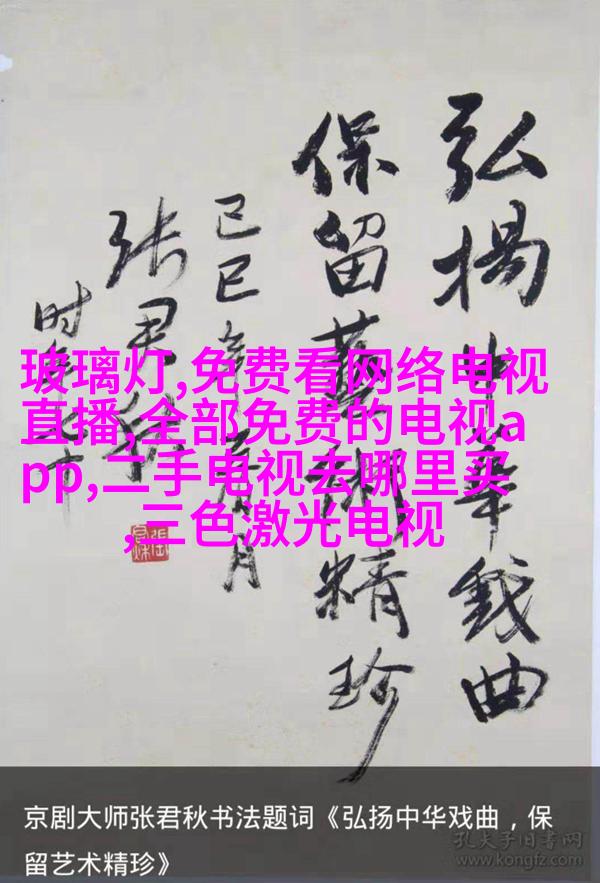 弘揚中華戲曲
保留藝術精珍
己巳年
月
张君秋
时年七十
玻璃灯,免费看网络电视
直播,全部免费的电视a
pp,二手电视去哪里买
,三色激光电视
京剧大师张君秋书法题词《弘扬中华戏曲，保
留艺术精珍》
孔夫子旧书网
www.kongfz.com